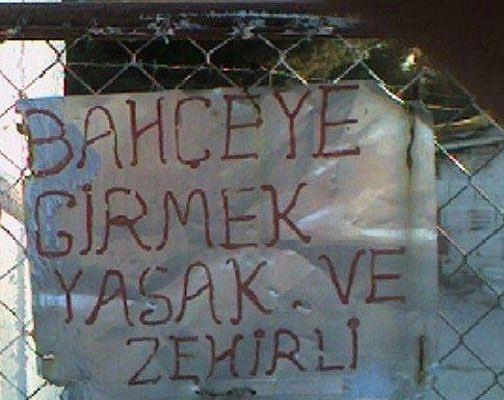 BAHÇEYE
GİRMEK
YASAK. VE
ZEHİRLİ